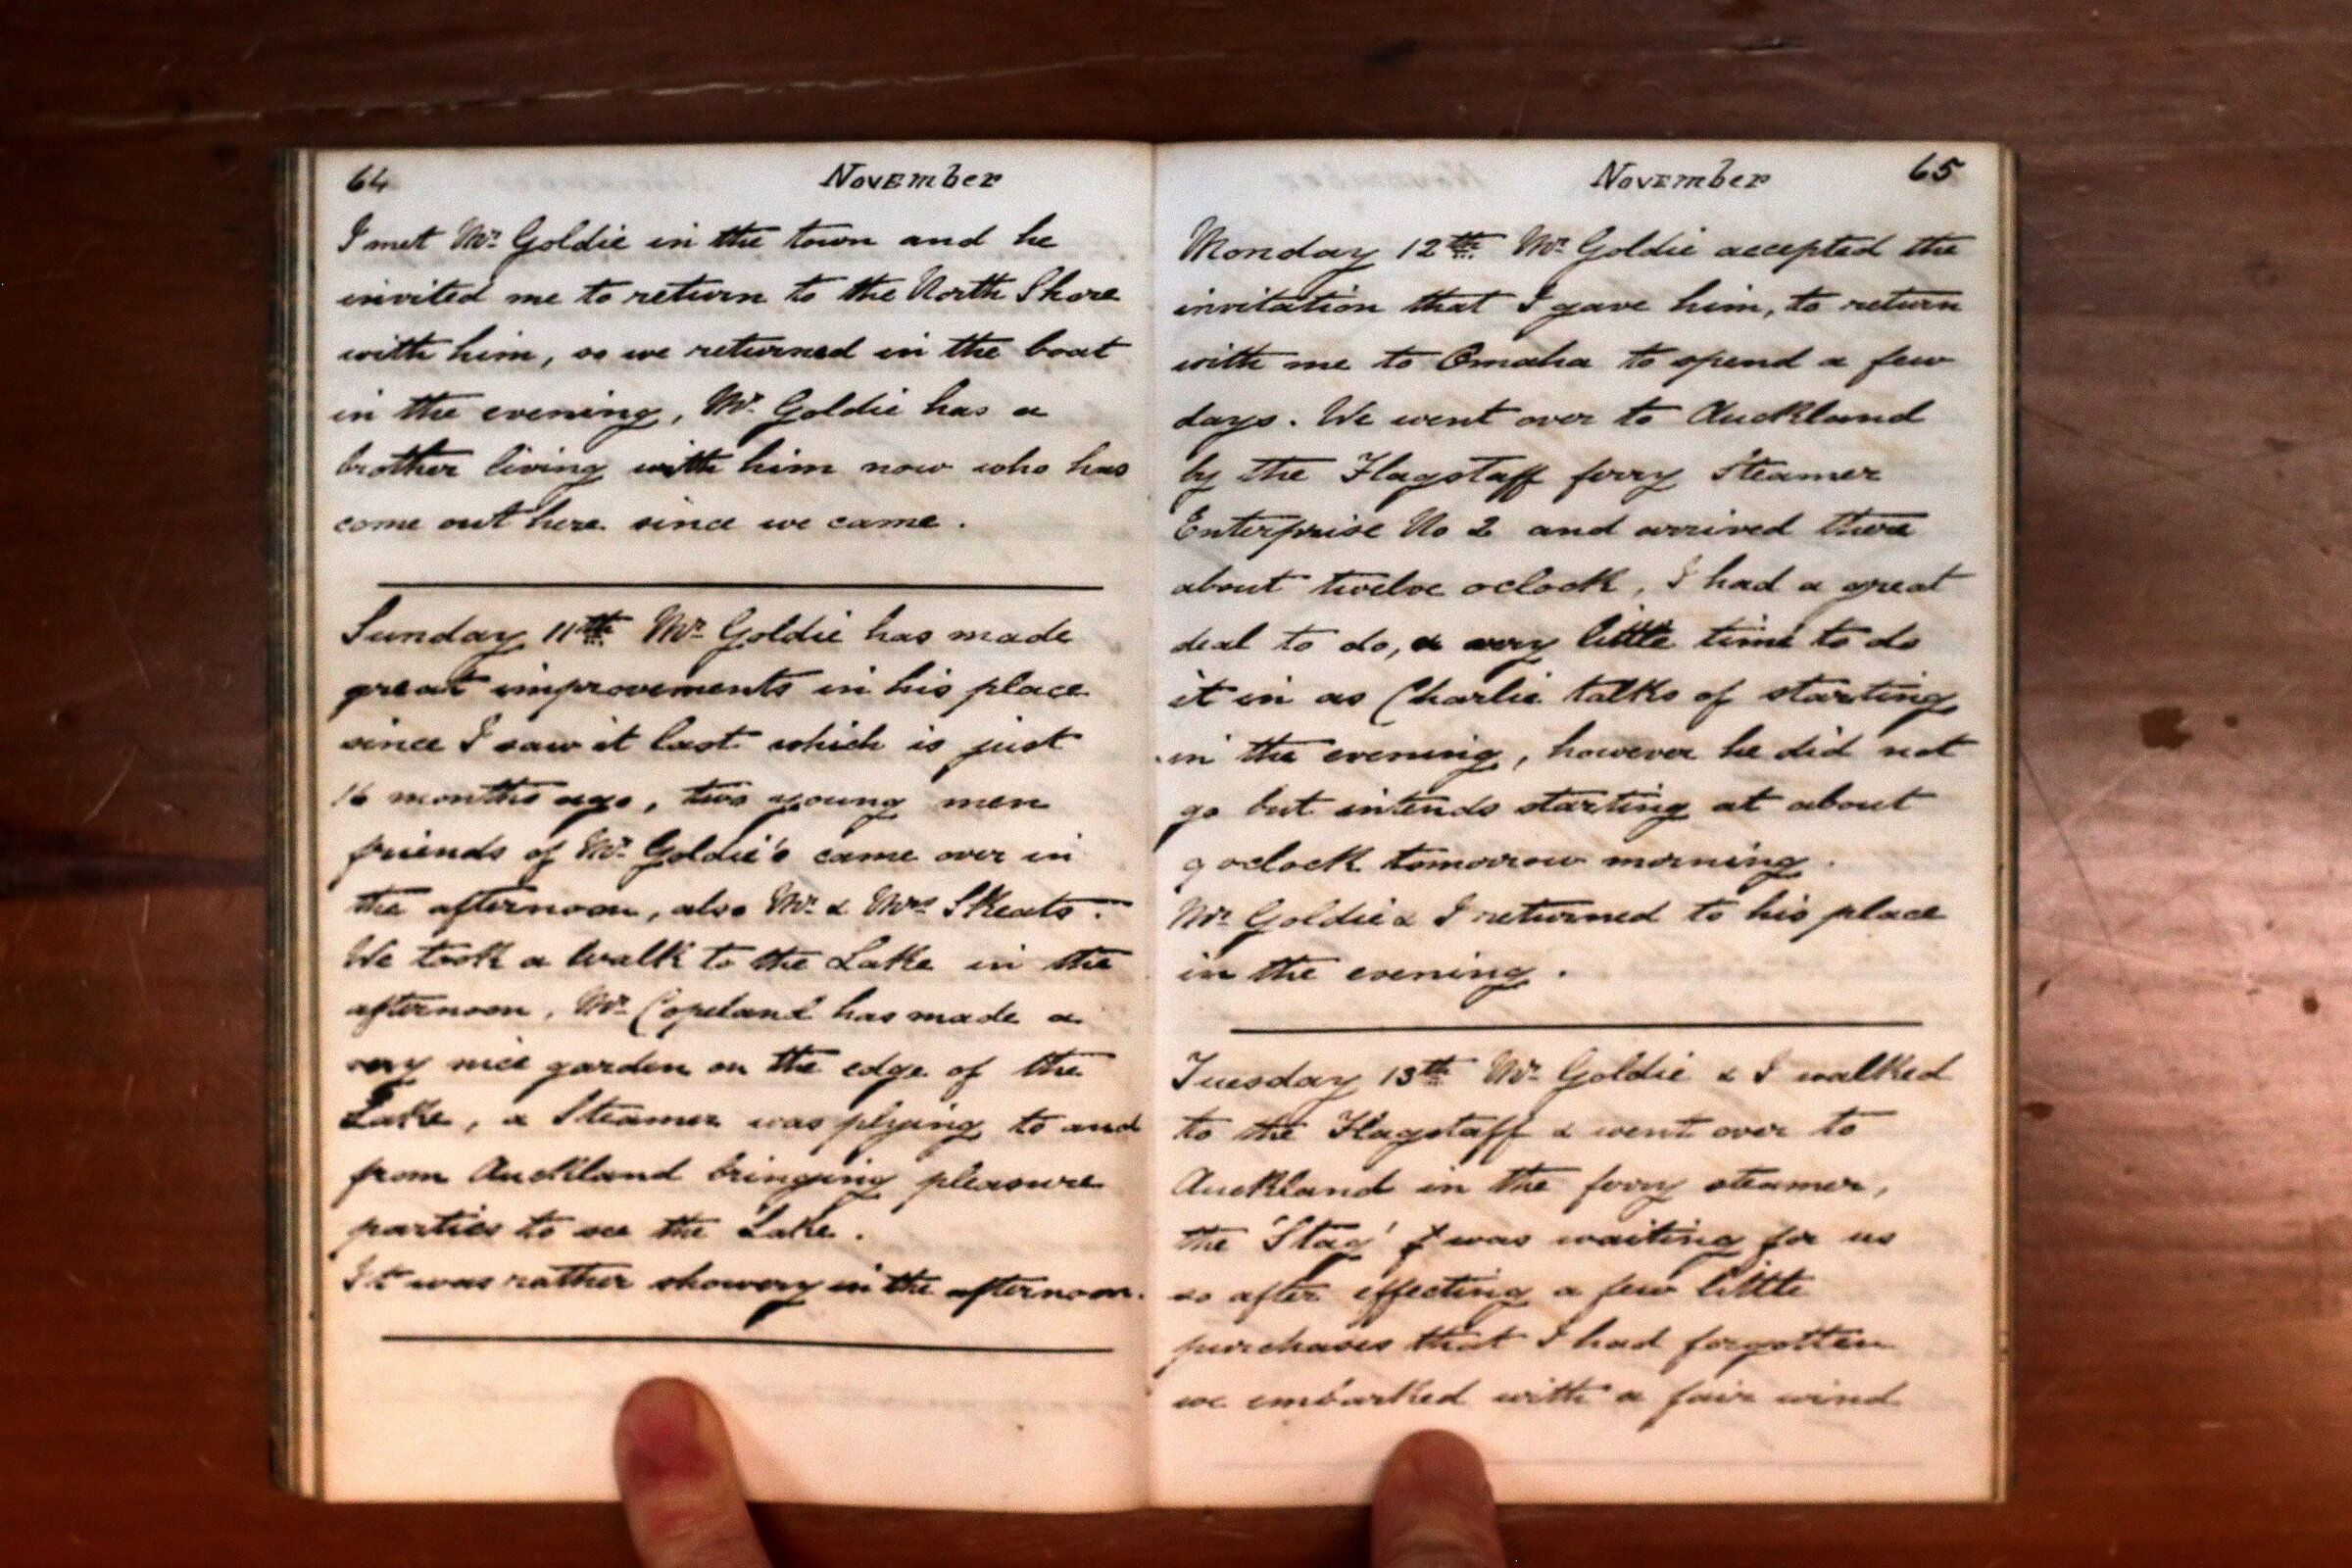 64 November
I met Mr. Goldie in the town and he
invited me to return to the North Shore
with him, so we returned in the boat
in the evening, Mr. Goldie has a
brother living with him now who has
come out here since we came.
Sunday 11th. Mr. Goldie has made
great improvements in his place
since I saw it last which is just
16 months ago, two young men
friends of Mr. Goldie's came over in
the afternoon, also Mr. & Mrs Skeats.
We took a walk to the Lake in the
afternoon, Mr. Copeland has made a
very nice garden on the edge of the
Lake, a Steamer was plying to and
from Auckland bringing pleasure
parties to see the Lake.
It was rather showery in the afternoon.
November 65
Monday 12th. Mr. Goldie accepted the
invitation that I gave him, to return
with me to Omaha to spend a few
days. We went over to Auckland
by the Flagstaff ferry Steamer
Enterprise No 2 and arrived there
about twelve oclock, I had a great
deal to do, & very little time to do
it in as Charlie talks of starting
in the evening, however he did not
go but intends starting at about
9 oclock tomorrow morning.
Mr. Goldie & I returned to his place
in the evening.
Tuesday 13th. Mr. Goldie & I walked
to the Flagstaff & went over to
Auckland in the ferry steamer,
the 'Stag' was waiting for us
so after effecting a few little
purchases that I had forgotten
we embarked with a fair wind